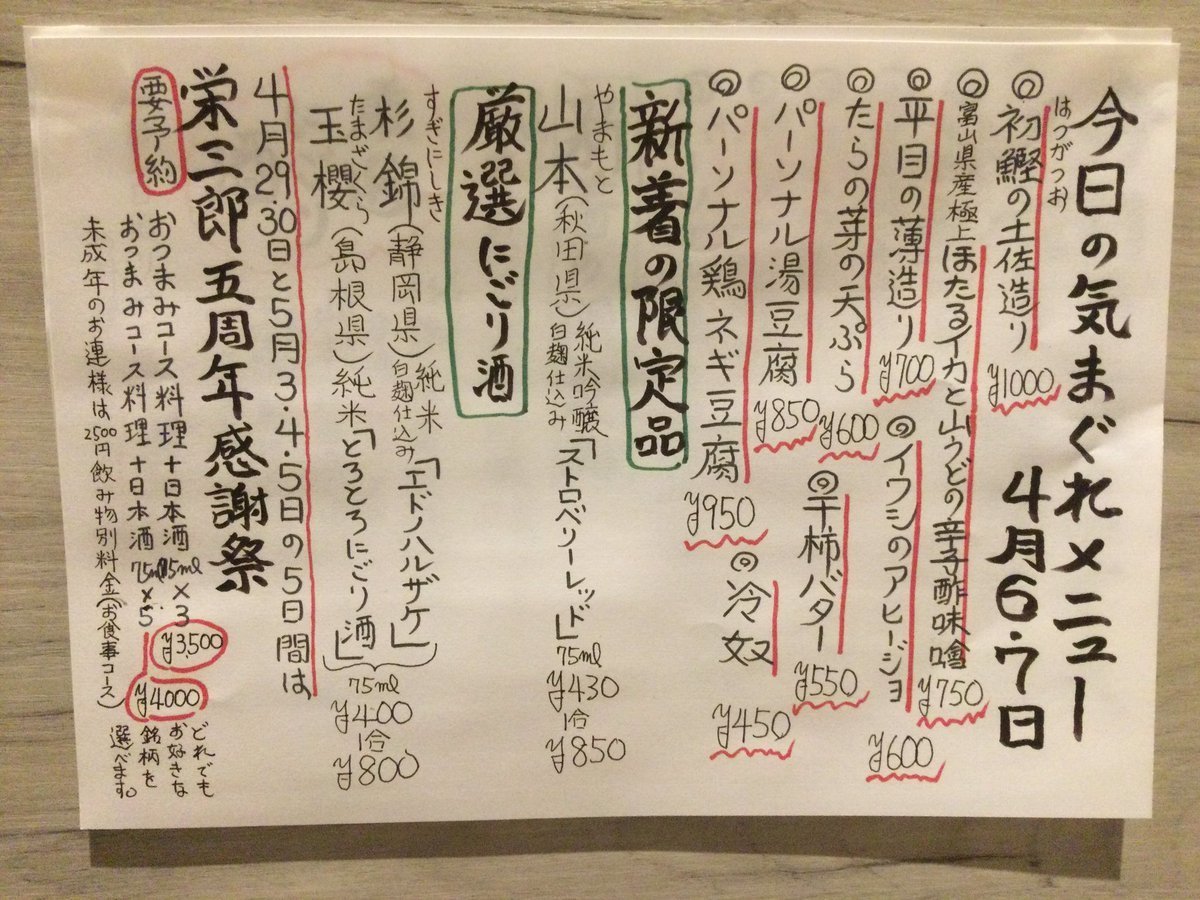 今日の気まぐれメニュー
4月6・7日
はつがつお
◎初鰹の土佐造り ¥1000
◎富山県産極上ほたるイカと山うどの辛子酢味噌 ¥750
◎平目の薄造り ¥700
◎イワシのアヒージョ ¥600
◎たらの芽の天ぷら ¥600
◎干柿バター ¥550
◎パーソナル湯豆腐 ¥850
◎冷奴 ¥450
◎パーソナル鶏ネギ豆腐 ¥950
新着の限定品
やまもと
山本(秋田県)純米吟醸 白麹仕込み「ストロベリーレッド」75ml ¥430 1合 ¥850
厳選にごり酒
すぎにしき
杉錦(静岡県)純米 白麹仕込み「エドノハルザケ」
たまざくら
玉櫻(島根県)純米「とろとろにごり酒」
75ml ¥400 1合 ¥800
4月29.30日と5月3・4・5日の5日間は
栄三郎五周年感謝祭
要予約
おつまみコース料理+日本酒75ml×3 ¥3,500
おつまみコース料理+日本酒75ml×5 ¥4000
どれでもお好きな銘柄を選べます。
未成年のお連様は2500円飲み物別料金(お食事コース)